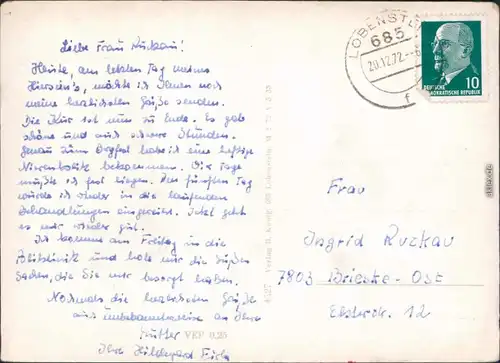 Liebe Frau Ruzkau!
Heute, am letzten Tag meines
Hierseins, möchte ich Ihnen noch
meine herzlichsten Grüße senden.
Die Kur ist nun zu Ende. Es gab
schöne und auch schwere Stunden.
Genau zum habe ich eine heftige
Nierenkolik bekommen. Die Tage
mußte ich fest liegen. Den fünften Tag
wurde ich wieder in die laufenden
Behandlungen eingereiht. Jetzt geht
es mir wieder gut.
Ich komme am Freitag in die
Poliklinik und hole mir die süßen
Sachen, die Sie mir besorgt haben.
Nochmals die herzlichsten Grüße
auch unbekannterweise an Ihre
Mutter VEP 0,25
Ihre Hildegard
LOBENSTEIN
685
20.12.72
f
10
DEUTSCHE
DEMOKRATISCHE REPUBLIK
Frau
Ingrid Ruzkau
7803 Brieske-Ost
Elsterstr. 12